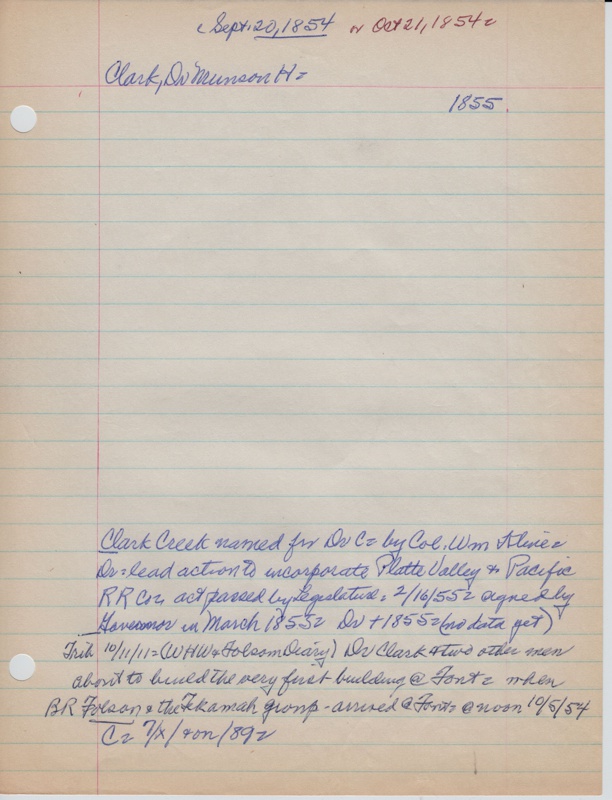 c Sept. 20, 1854 or Oct 21, 1854=
Clark, Dr Munson H=
1855.
Clark Creek named for Dr C= by Col. Wm Kline=
Dr= lead action to incorporate Platte Valley & Pacific
RR Co= act passed by Legislature= 2/16/55= signed by
Governor in March 1855= Dr + 1855= (no data yet)
Trib 10/11/11= (WHW & Folsom Diary) Dr Clark & two other men
about to build the very first building @ Font= when
BR Folsom & the Tekamah group - arrived @ Font= @ noon 10/5/54
C= 7/x/ /89=